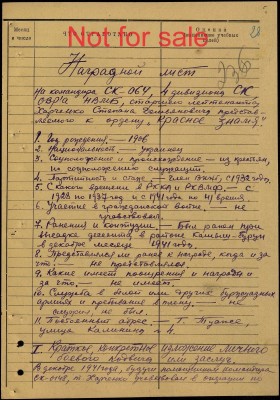 Not for sale
Наградной лист
На командира СК-064, 4 дивизиона СК
ОВР'а НВМБ, старшего лейтенанта
Харченко Степана Семеновича представ-
ленного к ордену "Красное знамя"
1. Год рождения — 1906
2. Национальность — украинец
3. Соцположение и происхождение — из крестьян,
по соцположению служащий.
4. Партийность и стаж — Член ВКП(б) с 1932 года
5. С какого времени в РККА и РКВМФ — с
1928 по 1937 год и с 1941 года по н/время
6. Участие в гражданской войне — не
участвовал.
7. Ранения и контузии — был ранен при
высадке десанта в районе Камыш-Бурун
в декабре месяце 1941 года.
8. Представлялся ранее к награде, когда и за
что — не представлялся
9. Какие имеет поощрения и награды и
за что — не имеет.
10. Служба в белой или других буржуазных
армиях и пребывание в плену — не
служил, не был.
11. Постоянный адрес — г. Туапсе,
улица Калинина № 4.
I. Краткое, конкретное изложение личного
боевого подвига или заслуг.
В декабре 1941 года, будучи помощником командира
СК-0148, т. Харченко участвовал в операции по